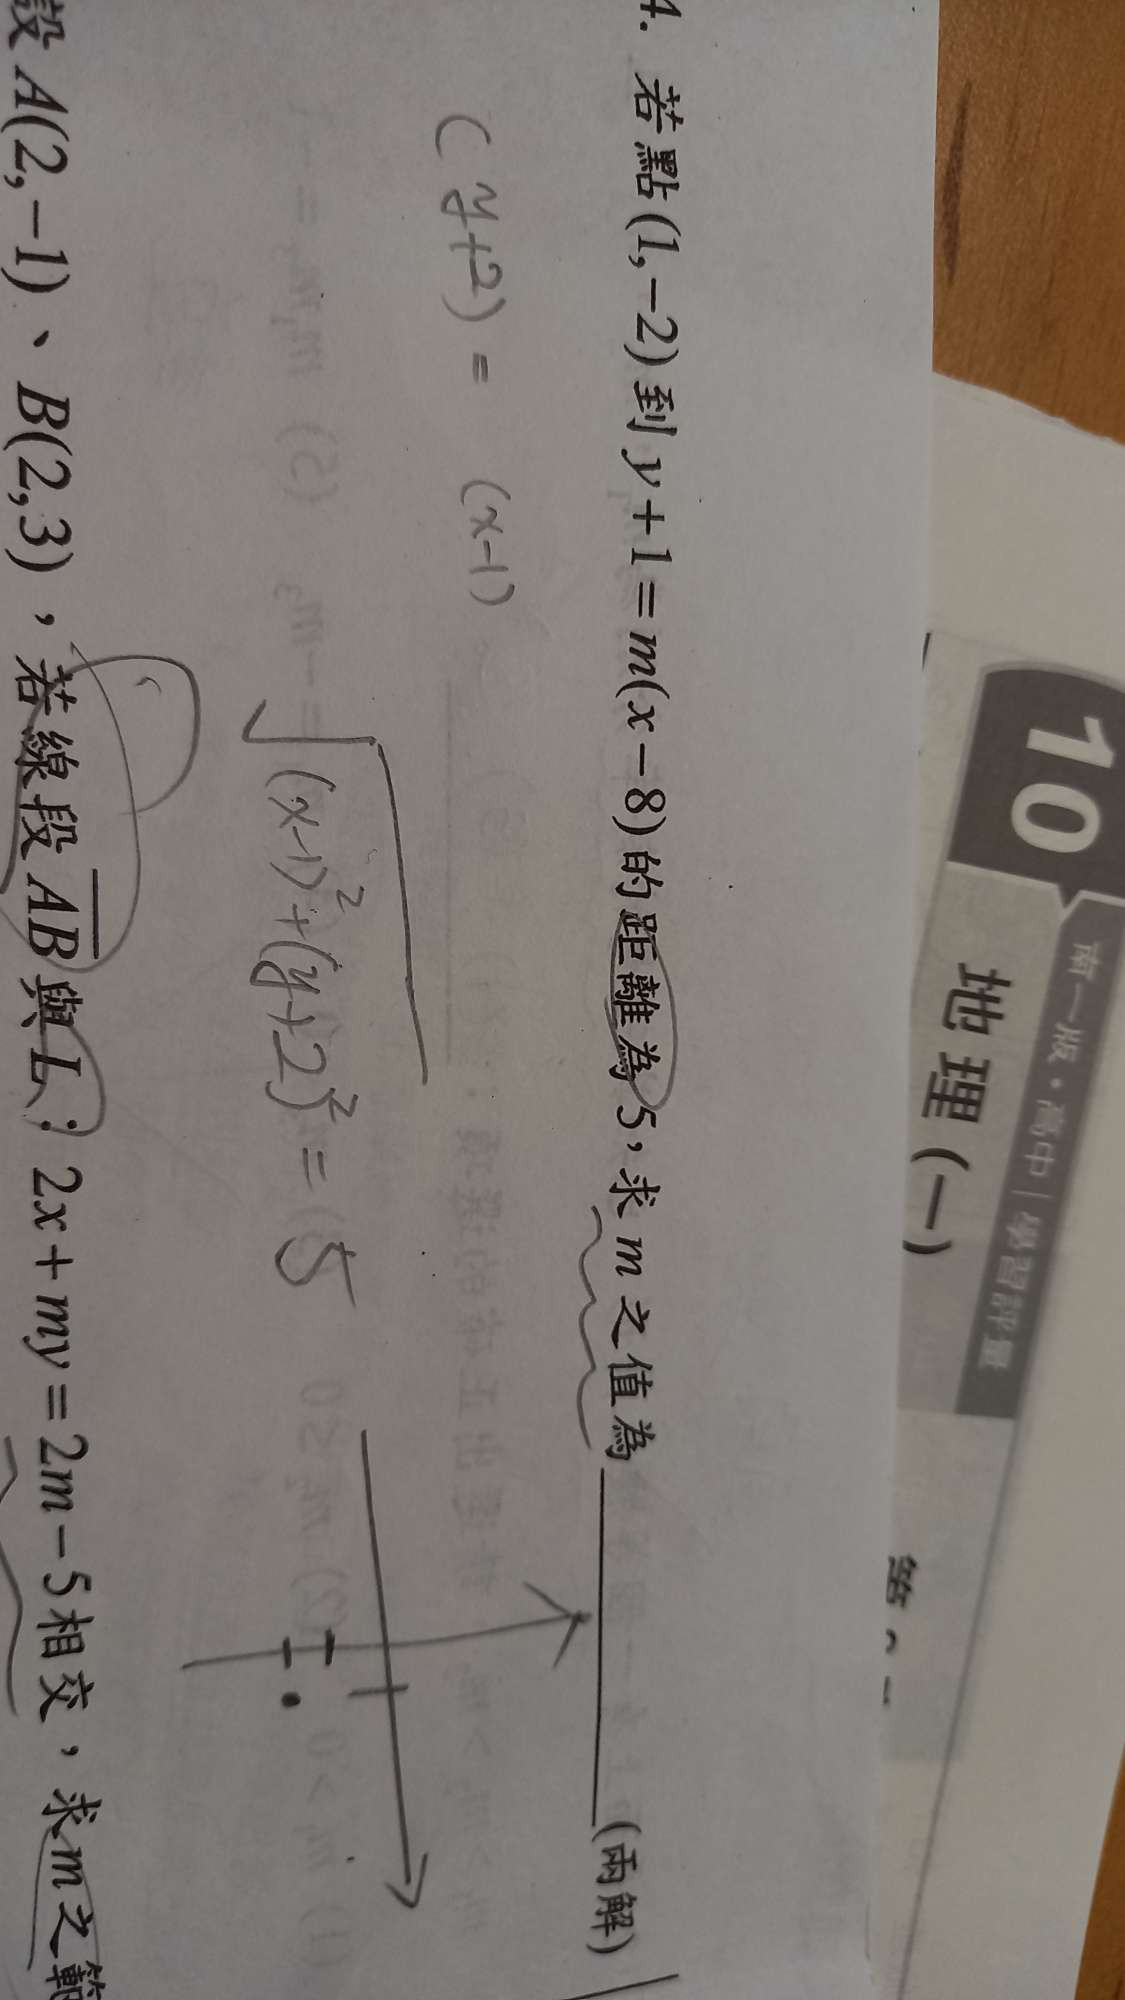 4. 若點(1,−2)到y+1=m(x−8)的距離為5,求m之值為(兩解)
(y+2) = (x-1)
√(x-1)²+(y+2)² = 5
設A(2,−1)、B(2,3),若線段AB與L:2x+my=2m−5相交,求m之範
10
南一版・高中|學習評量
地理(一)